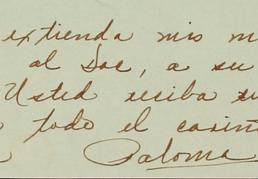 extienda mis m
al Doc, a su
Usted reciba su
todo el cariñ
Paloma